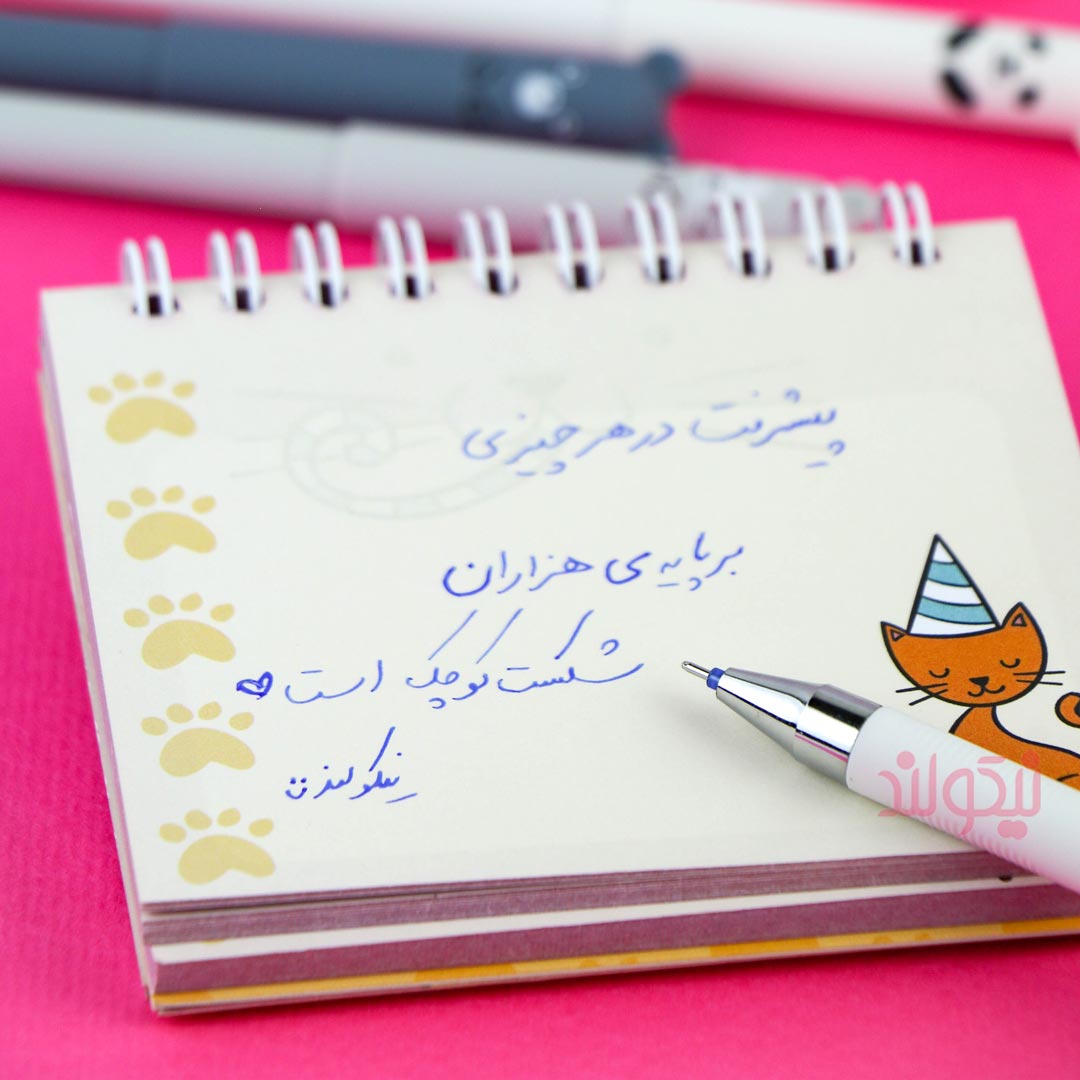 پیشرفت در هر چیزی
بر پایه ی هزاران
شکست کوچک است
نیکولند
نیکولند